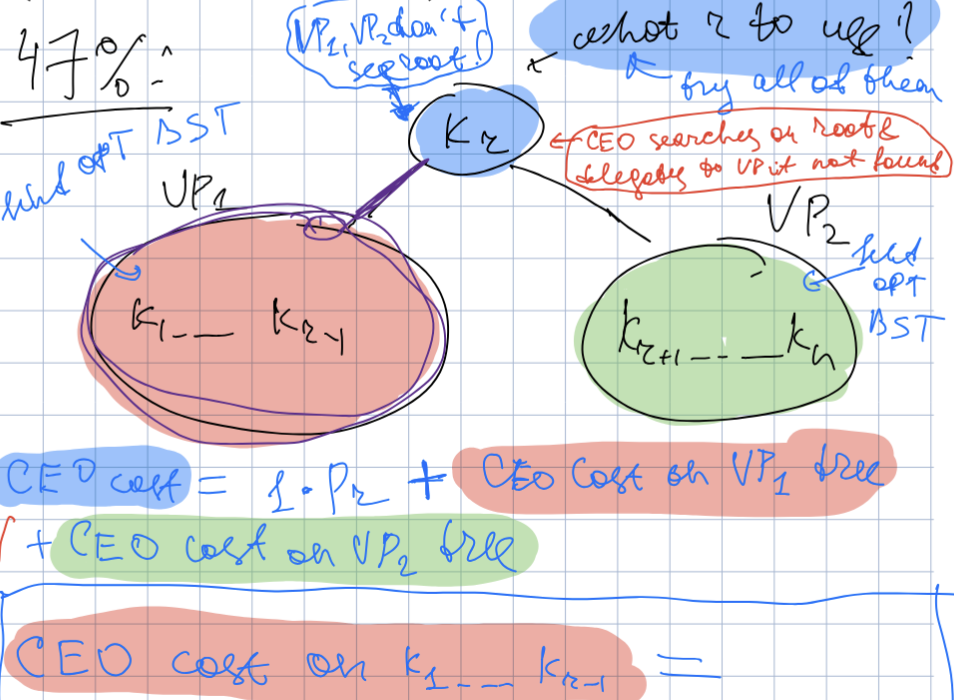 47%:
VP₁, VP₂ don't
see root!
what r to use?
try all of them
Kr
CEO searches on root &
delegates to VP if not found
find OPT BST
VP₁
VP₂
find
OPT
BST
K₁ _ _ _ Kr-1
Kr+1 _ _ _ Kn
CEO cost = 1·Pr + CEO cost on VP₁ tree
+ CEO cost on VP₂ tree
CEO cost on K₁ _ _ _ Kr-1 =